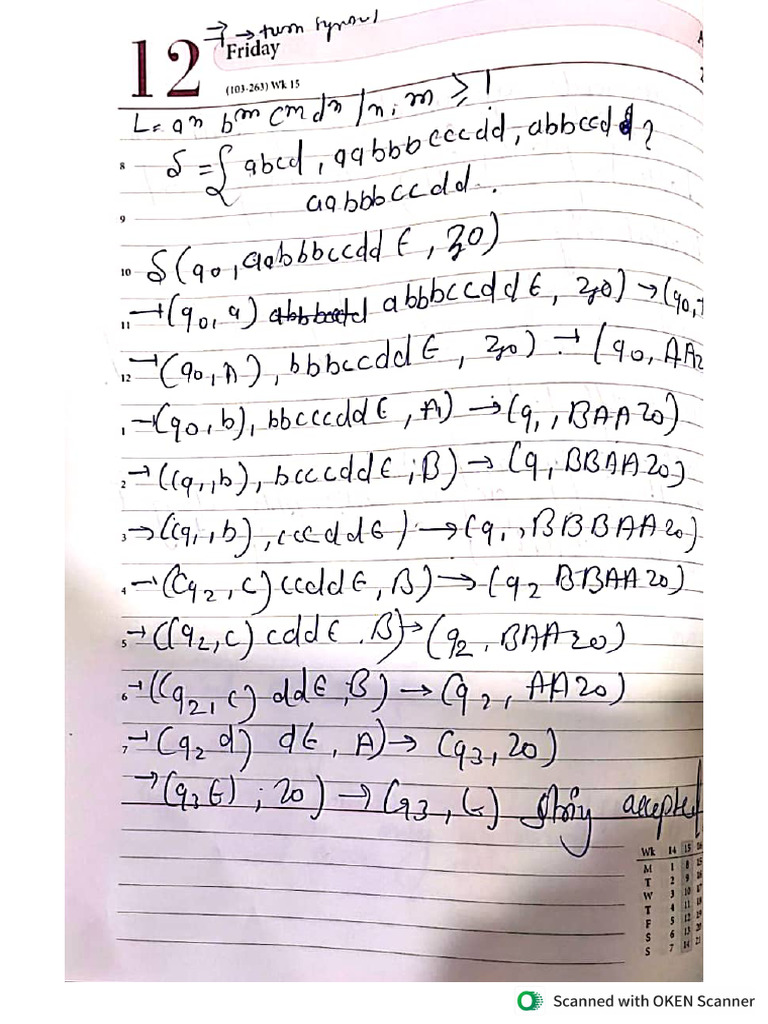 ⊢ → turn symbol
12 Friday
(103-263) Wk 15
L = aⁿ bᵐ cᵐ dⁿ / n, m ≥ 1
8 δ = { abcd, aabbbcccdd, abbccd }
9 aabbbccdd.
10 δ(q0, aabbbccdd ε, z0)
11 → (q0, a) abbbccdd ε, z0) → (q0,
12 → (q0, A), bbbccdd ε, z0) → (q0, AAz
1 → (q0, b), bbcccdd ε, A) → (q1, BAAz0)
2 → ((q1, b), bcccdd ε, B) → (q, BBAAz0)
3 → ((q1, b), cccddε) → (q1, BBBAAz0)
4 → ((q2, c) ccddd ε, B) → (q2 BBAAz0)
5 → ((q2, c) cddε, B) → (q2, BAAz0)
6 → ((q2, c) ddε, B) → (q2, AAz0)
7 → (q2 d) dε, A) → (q3, z0)
→ (q3 ε), z0) → (q3, ε) string accepted
Wk 14 15 16
M 1 8 15
T 2 9 16
W 3 10 17
T 4 11 18
F 5 12 19
S 6 13 20
S 7 14 21
Scanned with OKEN Scanner